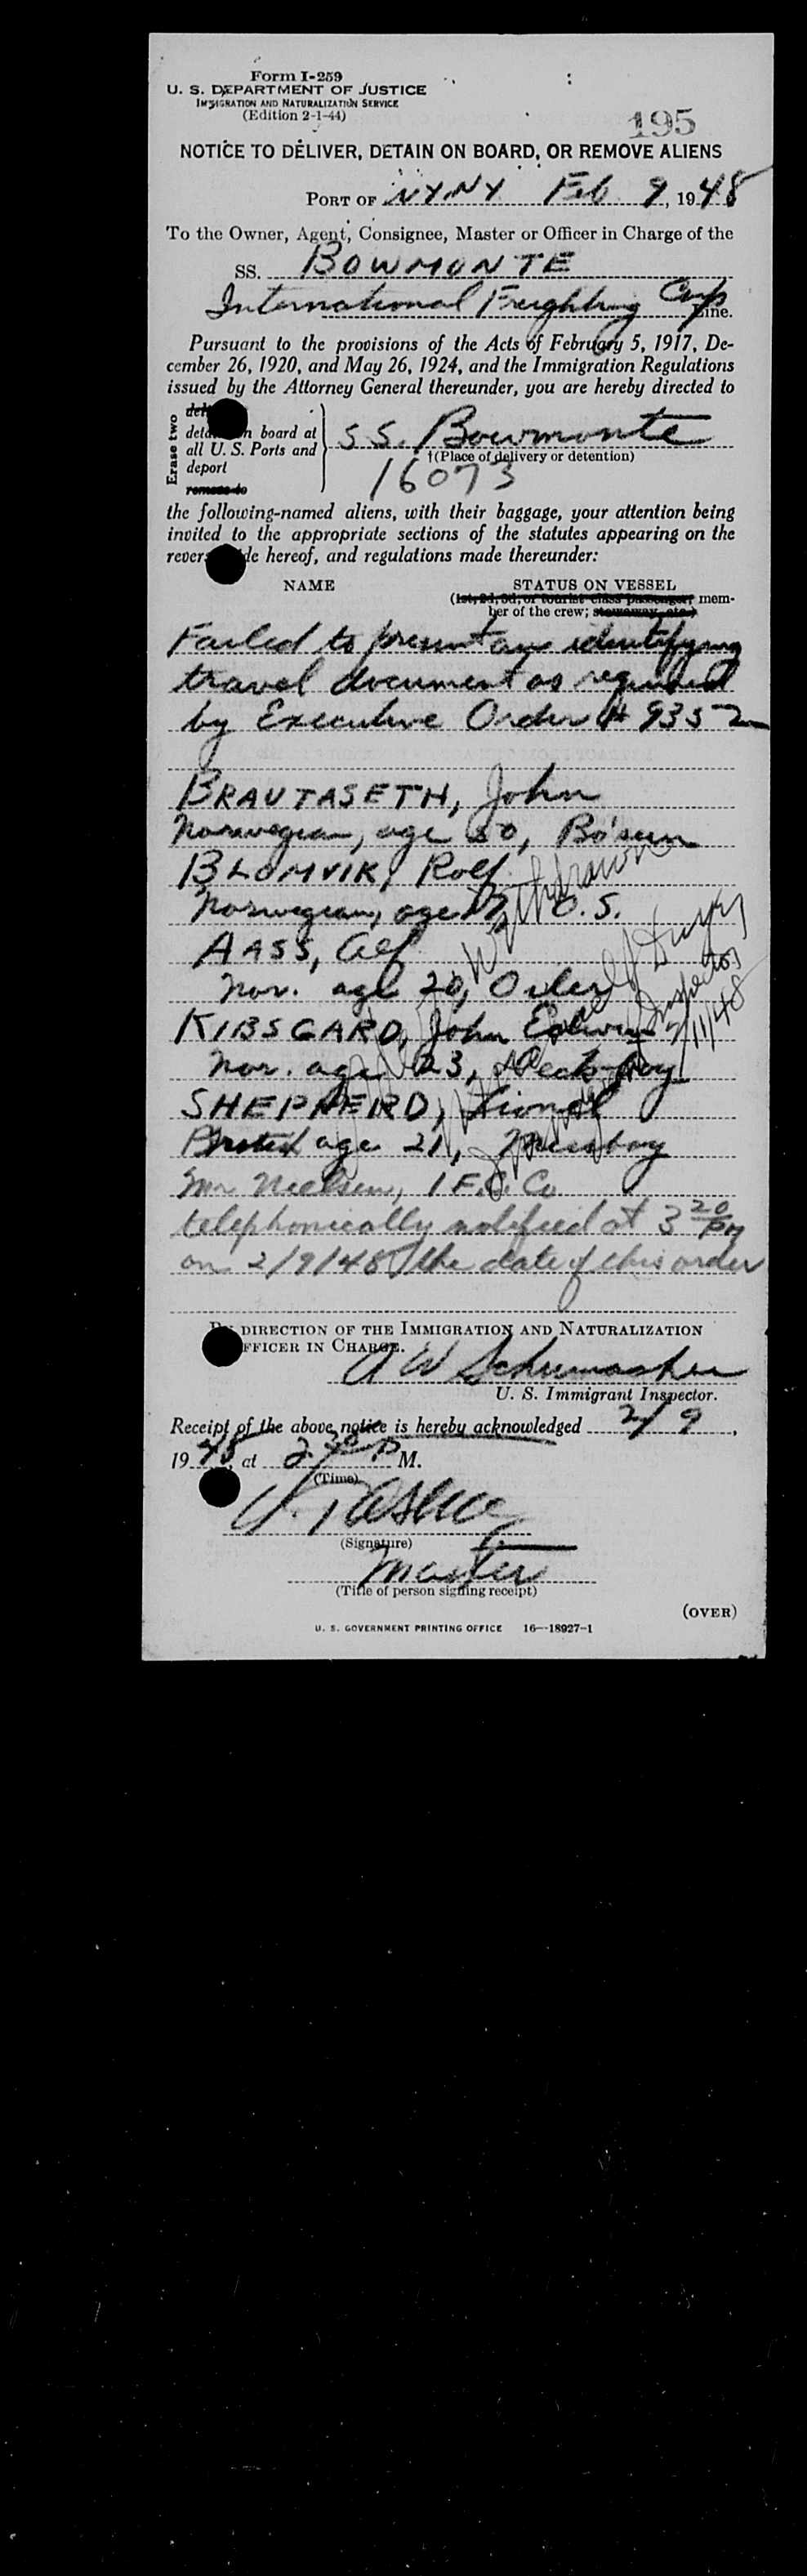 Form I-259
U. S. DEPARTMENT OF JUSTICE
IMMIGRATION AND NATURALIZATION SERVICE
(Edition 2-1-44)
195
NOTICE TO DELIVER, DETAIN ON BOARD, OR REMOVE ALIENS
PORT OF NY. NY Feb 9, 1948
To the Owner, Agent, Consignee, Master or Officer in Charge of the
SS. BOWMONTE
International Freighting Corp Line.
Pursuant to the provisions of the Acts of February 5, 1917, De-
cember 26, 1920, and May 26, 1924, and the Immigration Regulations
issued by the Attorney General thereunder, you are hereby directed to
Erase two
on board at
all U. S. Ports and
deport
remove to
SS. Bowmonte
†(Place of delivery or detention)
16073
the following-named aliens, with their baggage, your attention being
invited to the appropriate sections of the statutes appearing on the
hereof, and regulations made thereunder:
NAME STATUS ON VESSEL
(1st, 2d, 3d, or tourist class passenger, mem-
ber of the crew; stowaway, etc.)
Failed to present an identifying
travel document as required
by Executive Order # 9352
BRAUTASETH, John
Norwegian, age 50, Bo'sun
BLOMVIK, Rolf
Norwegian, age O.S.
AASS, Alf
Nor. age 20, Oiler
KIBSGARD, John
Nor. age 23, Deck boy
SHEPHERD, Lionel
age 21, Messboy
Withdrawn
Inspector
2/11/48
Mr Nielsen, I F. Co
telephonically notified at 3 20 PM
on 2/9/48 the date of this order
BY DIRECTION OF THE IMMIGRATION AND NATURALIZATION
OFFICER IN CHARGE.
A W Schumacher
U. S. Immigrant Inspector.
Receipt of the above notice is hereby acknowledged 2/9,
1948, at P M.
(Time)
(Signature)
Master
(Title of person signing receipt)
(OVER)
U. S. GOVERNMENT PRINTING OFFICE 16—18927-1